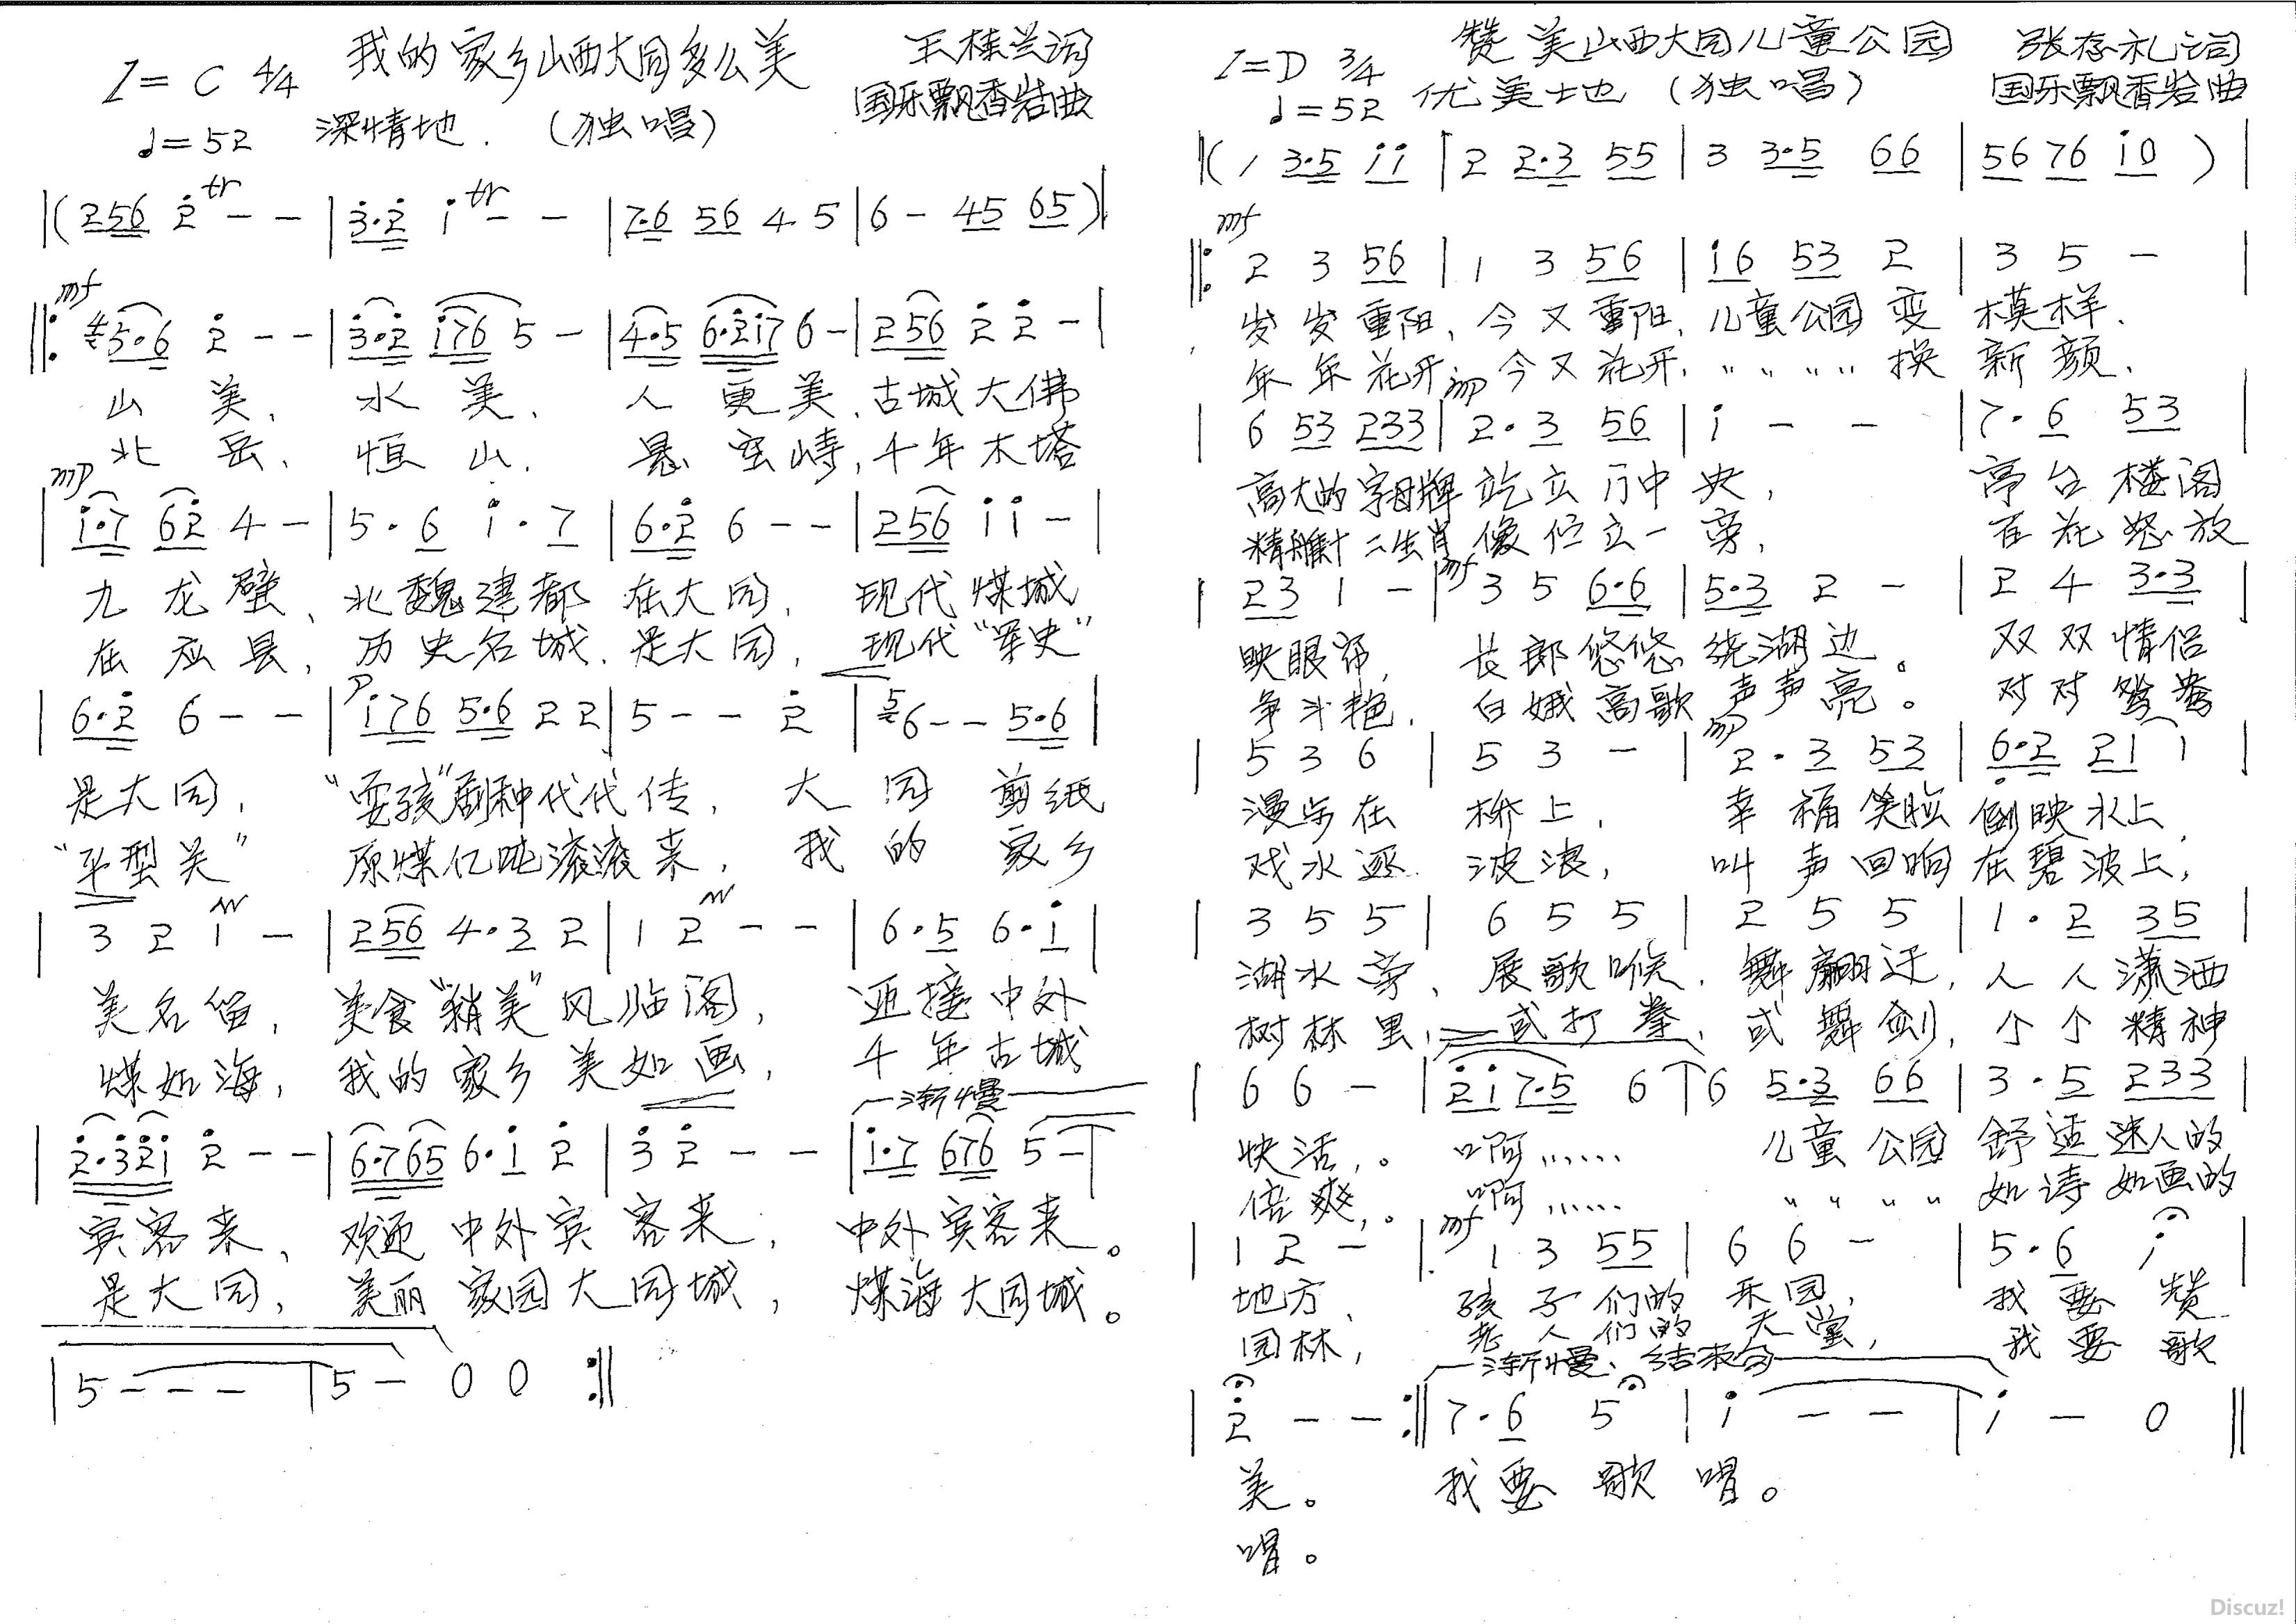 我的家乡山西大同多么美
王桂兰词
1= C 4/4
国乐飘香谱曲
♩=52 深情地. (独唱)
|( 256 2̇ tr - - | 3̇·2̇ 1̇ tr - - | 7·6 56 4 5 | 6 - 45 65 )|
mf
||: 5·6 2̇ - - | 3̇·2̇ 1̇76 5 - | 4·5 6·2̇1̇7 6 - | 256 2̇ 2̇ - |
山美、水美、人更美、古城大佛
北岳、恒山、悬空寺,千年木塔
mp
| 1̇·7 62̇ 4 - | 5·6 1̇·7 | 6·2̇ 6 - - | 256 1̇ 1̇ - |
九龙壁、北魏建都在大同、现代煤城
在应县,历史名城是大同,现代“军史”
| 6·2̇ 6 - - | p 1̇76 5·6 2 2 | 5 - - 2̇ | 5 6 - - 5·6 |
是大同,“耍孩”剧种代代传,大同剪纸
“平型关”原煤亿吨滚滚来,我的家乡
| 3 2 1 - | 256 4·3 2 | 1 2 - - | 6·5 6·1̇ |
美名留,美食“稍美”凤临阁,迎接中外
煤如海,我的家乡美如画,千年古城
渐慢
| 2̇·3̇2̇1̇ 2̇ - - | 6·765 6·1̇ 2̇ | 3̇ 2̇ - - | 1̇·7 676 5 - |
宾客来、欢迎中外宾客来,中外宾客来。
是大同,美丽家园大同城,煤海大同城。
| 5 - - - | 5 - 0 0 :||
赞美山西大同儿童公园
张存礼词
1=D 3/4
♩=52 优美地 (独唱)
国乐飘香谱曲
|( 1 3·5 1̇1̇ | 2 2·3 55 | 3 3·5 66 | 56 76 1̇0 )|
mf
||: 2 3 56 | 1 3 56 | 1̇6 53 2 | 3 5 - |
岁岁重阳,今又重阳,儿童公园变模样.
年年花开,今又花开,〃〃〃〃换新颜.
mp
| 6 53 233 | 2·3 56 | 1̇ - - | 7·6 53 |
高大的字母牌屹立门中央,亭台楼阁
精雕十二生肖像伫立一旁,百花怒放
mf
| 23 1 - | 3 5 6·6 | 5·3 2 - | 2 4 3·3 |
映眼帘,长廊悠悠绕湖边。双双情侣
争斗艳.白娥高歌声声亮。对对鸳鸯
mp
| 5 3 6 | 5 3 - | 2·3 53 | 6̣·2 21 1 |
漫步在桥上,幸福笑脸倒映水上,
戏水逐波浪,叫声回响在碧波上,
| 3 5 5 | 6 5 5 | 2 5 5 | 1·2 35 |
湖水旁、展歌喉.舞翩迁,人人潇洒
树林里,或打拳,或舞剑,个个精神
| 6 6 - | 2̇1̇ 7·5 6 | 6 5·3 66 | 3·5 233 |
快活,。啊…… 儿童公园舒适迷人的
倍爽,。啊…… 〃〃〃〃如诗如画的
mf
| 1 2 - | 1 3 55 | 6 6 - | 5·6 1̇ |
地方、孩子们的乐园,我要赞
园林,老人们的天堂,我要歌
渐慢、结束句
| 2̇ - - :|| 7·6 5 | 1̇ - - | 1̇ - 0 ||
美。我要歌唱。
唱。
Discuz!